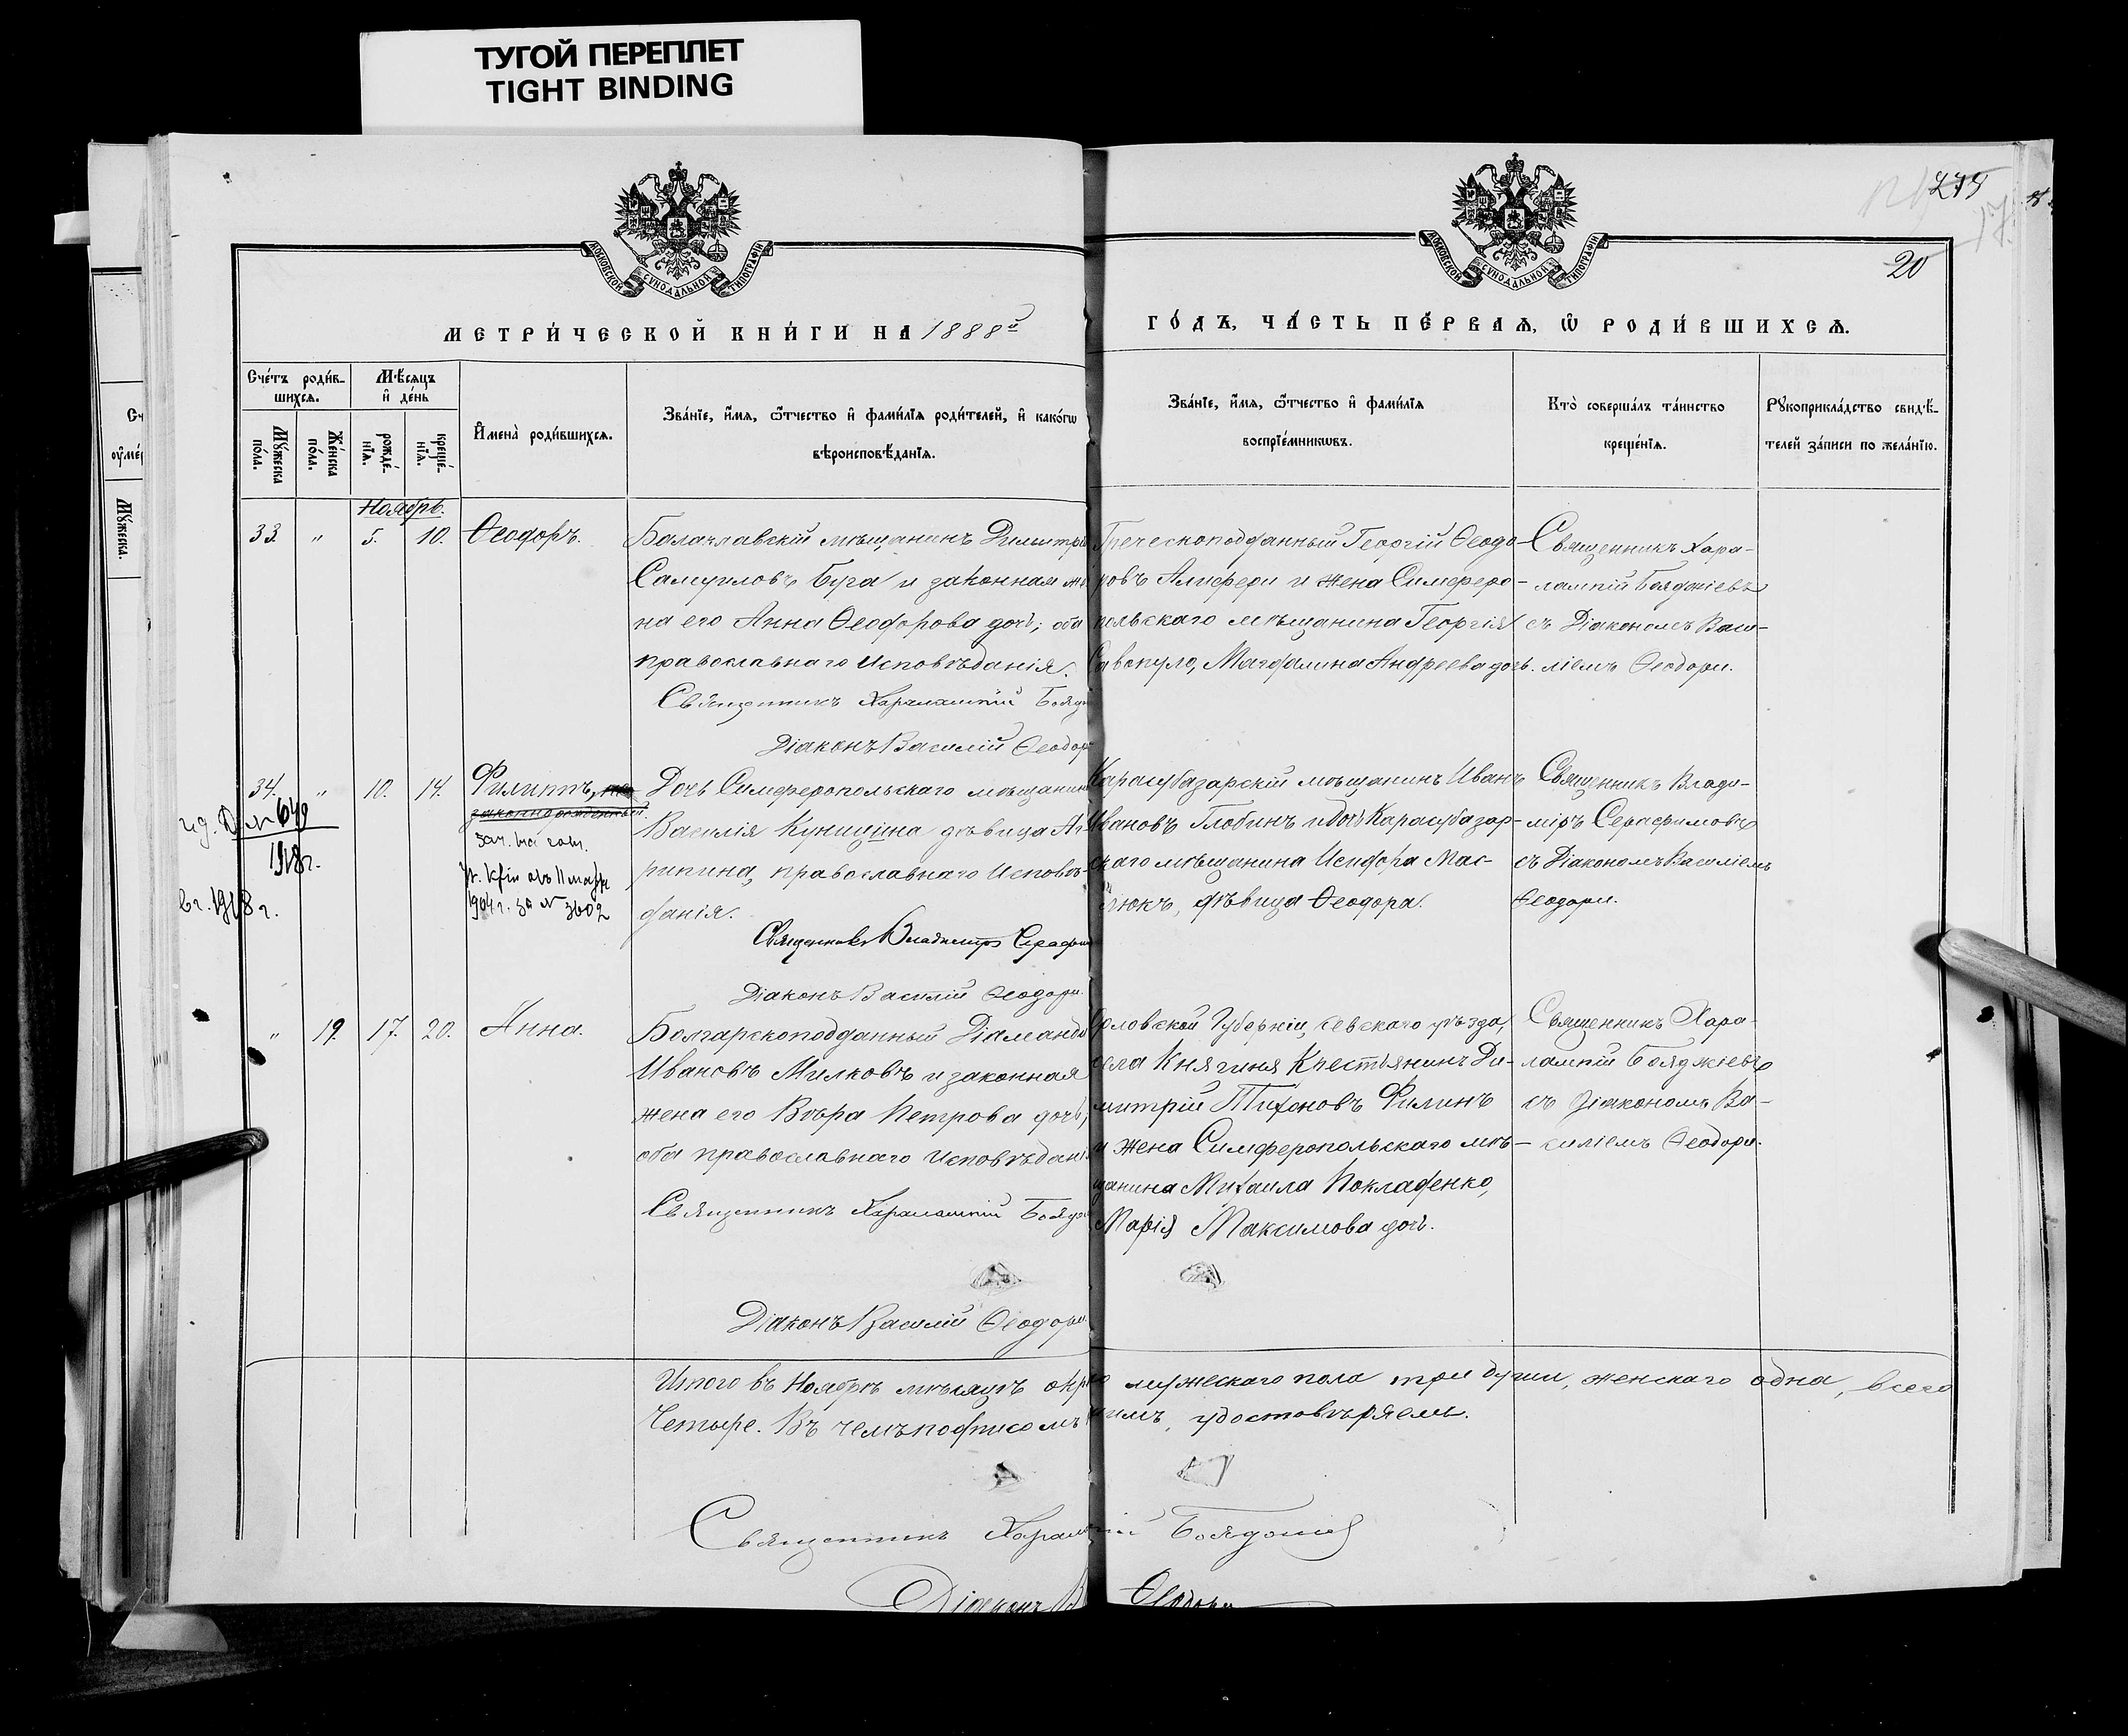 ТУГОЙ ПЕРЕПЛЕТ
TIGHT BINDING
МОСКОВСКОЙ СѴНОДАЛЬНОЙ ТИПОГРАФІИ
МОСКОВСКОЙ СѴНОДАЛЬНОЙ ТИПОГРАФІИ
279
17.
20
МЕТРИ́ЧЕСКОЙ КНИ́ГИ НА 1888й
ГО́ДЪ, ЧА́СТЬ ПЕ́РВАѦ, Ѡ҆ РОДИ́ВШИХСѦ.
Сче́тъ роди́в-
шихсѧ.
Мѣ́сѧцъ
и҆ де́нь
Мꙋ́жеска
по́ла.
Же́нска
по́ла.
рожде́-
нїѧ.
креще́-
нїѧ.
И҆мена̀ роди́вшихсѧ.
Зва́нїе, и҆́мѧ, ѻ҆́тчество и҆ фами́лїѧ роди́телей, и҆ како́гѡ
вѣроисповѣ́данїѧ.
Зва́нїе, и҆́мѧ, ѻ҆́тчество и҆ фами́лїѧ
воспрїе́мникѡвъ.
Кто̀ соверша́лъ та́инство
креще́нїѧ.
Рꙋкоприкла́дство свидѣ́-
телей за́писи по жела́нїю.
Ноябрь.
33. " 5. 10. Ѳеодоръ.
Балаклавскій мѣщанинъ Димитрі
Самуиловъ Буга и законная же
на его Анна Ѳеодорова дочь; оба
православнаго исповѣданія.
Священникъ Харалампій Бояд
Діаконъ Василій Ѳеодор
Греческоподданный Георгій Ѳеодо-
ровъ Алифери и жена Симферо-
польскаго мѣщанина Георгія
Савопуло, Магдалина Андреева дочь.
Священникъ Хара-
лампій Бояджіевъ
съ Діакономъ Васи-
ліемъ Ѳеодори.
34. " 10. 14. Филиппъ,
незаконнорожденный.
1904 г. за № 3602
№ 649
1918 г.
в г. 1918 г.
Дочь Симферопольскаго мѣщанин
Василія Куницина дѣвица Аг
рипина, православнаго исповѣ-
данія.
Священникъ Владиміръ Серафим
Діаконъ Василій Ѳеодори.
Карасубазарскій мѣщанинъ Иванъ
Ивановъ Глобинъ и дочь Карасубазар-
скаго мѣщанина Исидора Мас-
люкъ, дѣвица Ѳеодора.
Священникъ Влади-
міръ Серафимовъ
съ Діакономъ Василіемъ
Ѳеодори.
" 19. 17. 20. Анна.
Болгарскоподданный Діаманди
Ивановъ Милковъ и законная
жена его Вѣра Петрова дочь,
оба православнаго исповѣдані
Священникъ Харалампій Бояд
Діаконъ Василій Ѳеодори.
Орловской Губерніи, Севскаго уѣзда,
села Княгиня Крестьянинъ Ди-
митрій Тихоновъ Филинъ
и жена Симферопольскаго мѣ-
щанина Михаила Покладенко,
Марія Максимова дочь.
Священникъ Хара-
лампій Бояджіевъ
съ Діакономъ Ва-
силіемъ Ѳеодори.
Итого въ Ноябрѣ мѣсяцѣ мужескаго пола три души, женскаго одна, всего
Четыре. Въ чемъ подписомъ удостовѣряемъ.
Священникъ Харалампій Бояджіевъ
Діаконъ В Ѳеодори